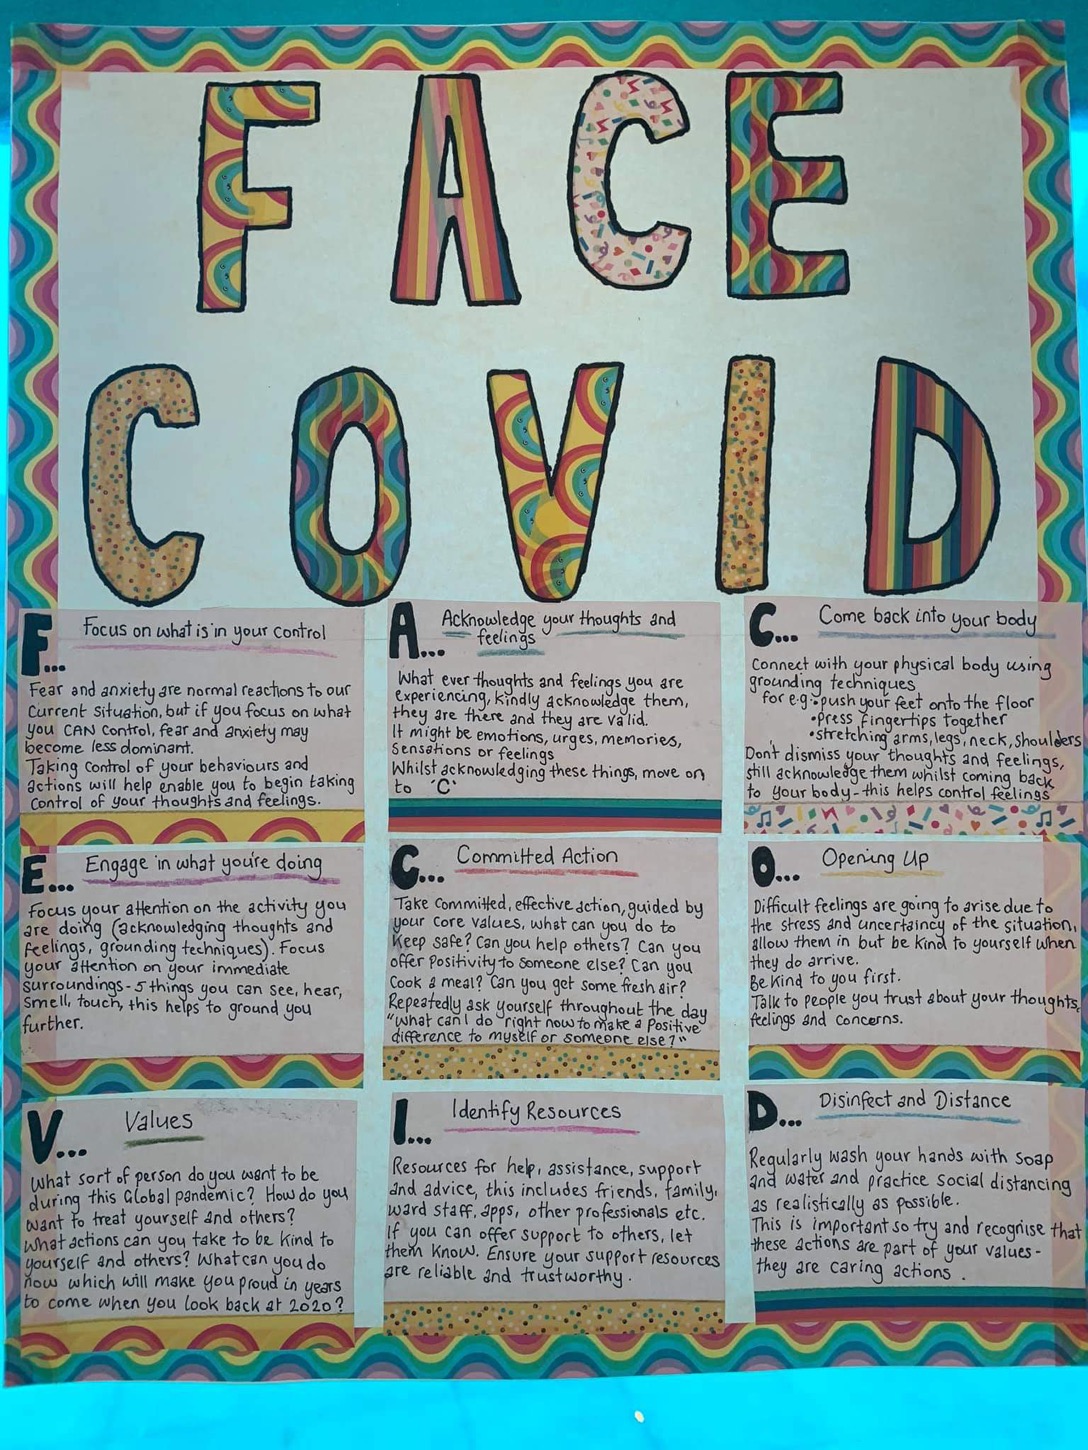 FACE
COVID
F...
Focus on what is in your control
Fear and anxiety are normal reactions to our
current situation, but if you focus on what
you CAN control, fear and anxiety may
become less dominant.
Taking control of your behaviours and
actions will help enable you to begin taking
control of your thoughts and feelings.
A...
Acknowledge your thoughts and
feelings
What ever thoughts and feelings you are
experiencing, kindly acknowledge them,
they are there and they are valid.
It might be emotions, urges, memories,
sensations or feelings
Whilst acknowledging these things, move on
to 'C'
C...
Come back into your body
Connect with your physical body using
grounding techniques
for e.g: • push your feet onto the floor
• press fingertips together
• stretching arms, legs, neck, shoulders
Don't dismiss your thoughts and feelings,
still acknowledge them whilst coming back
to your body - this helps control feelings
E...
Engage in what you're doing
Focus your attention on the activity you
are doing (acknowledging thoughts and
feelings, grounding techniques). Focus
your attention on your immediate
surroundings - 5 things you can see, hear,
smell, touch, this helps to ground you
further.
C...
Committed Action
Take committed, effective action, guided by
your core values, what can you do to
keep safe? Can you help others? Can you
offer positivity to someone else? Can you
cook a meal? Can you get some fresh air?
Repeatedly ask yourself throughout the day
"What can I do right now to make a positive
difference to myself or someone else?"
O...
Opening Up
Difficult feelings are going to arise due to
the stress and uncertaincy of the situation,
allow them in but be kind to yourself when
they do arrive.
Be kind to you first.
Talk to people you trust about your thoughts,
feelings and concerns.
V...
Values
What sort of person do you want to be
during this Global pandemic? How do you
want to treat yourself and others?
What actions can you take to be kind to
yourself and others? What can you do
now which will make you proud in years
to come when you look back at 2020?
I...
Identify Resources
Resources for help, assistance, support
and advice, this includes friends, family,
ward staff, apps, other professionals etc.
If you can offer support to others, let
them know. Ensure your support resources
are reliable and trustworthy.
D...
Disinfect and Distance
Regularly wash your hands with soap
and water and practice social distancing
as realistically as possible.
This is important so try and recognise that
these actions are part of your values -
they are caring actions.